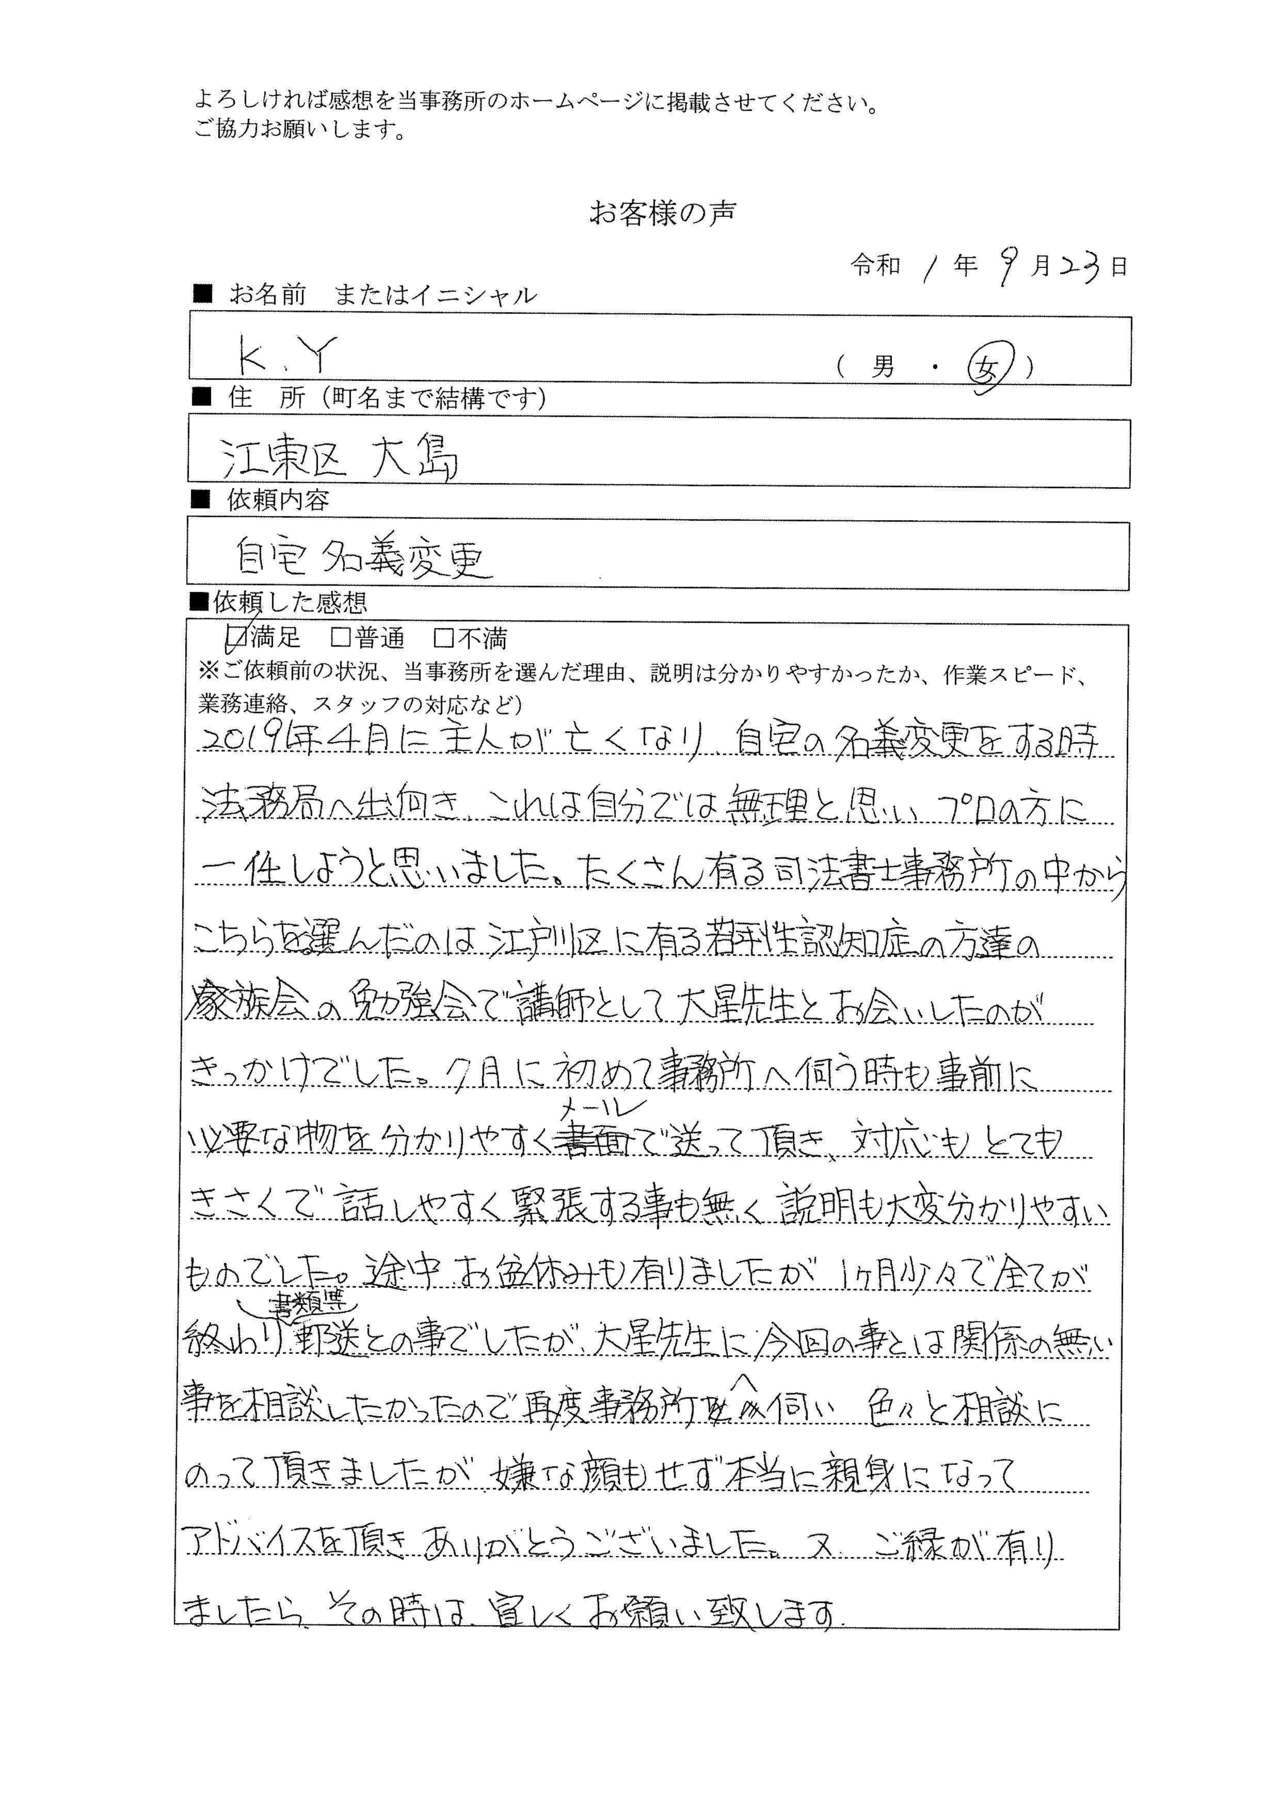 よろしければ感想を当事務所のホームページに掲載させてください。
ご協力お願いします。
お客様の声
令和 1 年 9 月 23 日
■ お名前 またはイニシャル
K.Y (男・女)
■ 住 所(町名まで結構です)
江東区 大島
■ 依頼内容
自宅 名義変更
■依頼した感想
☑満足 □普通 □不満
※ご依頼前の状況、当事務所を選んだ理由、説明は分かりやすかったか、作業スピード、
業務連絡、スタッフの対応など)
2019年4月に主人が亡くなり、自宅の名義変更をする時
法務局へ出向き、これは自分では無理と思い プロの方に
一任しようと思いました。たくさん有る司法書士事務所の中から
こちらを選んだのは江戸川区に有る若年性認知症の方達の
家族会の勉強会で講師として大星先生とお会いしたのが
きっかけでした。7月に初めて事務所へ伺う時も事前に
必要な物を分かりやすくメールで送って頂き、対応もとても
きさくで話しやすく緊張する事も無く説明も大変分かりやすい
ものでした。途中お盆休みも有りましたが 1ヶ月少々で全てが
終わり書類等郵送との事でしたが、大星先生に今回の事とは関係の無い
事を相談したかったので再度事務所へ伺い 色々と相談に
のって頂きましたが、嫌な顔もせず本当に親身になって
アドバイスを頂きありがとうございました。又、ご縁が有り
ましたら、その時は、宜しくお願い致します.